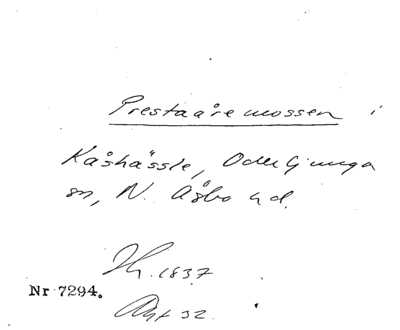 Prestaåremossen i
Kåshässle, Oderljunga
sn, N. Åsbo hd.
Hh. 1837
Nr 7294.
Akt 32.